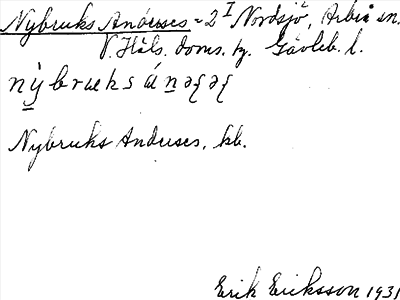 Nybruks Anderses = 2 I Nordsjö, Arbrå sn.
V. Häls. doms. hg. Gävleb. l.
Nybruks Anderses, kb.
Erik Eriksson 1931